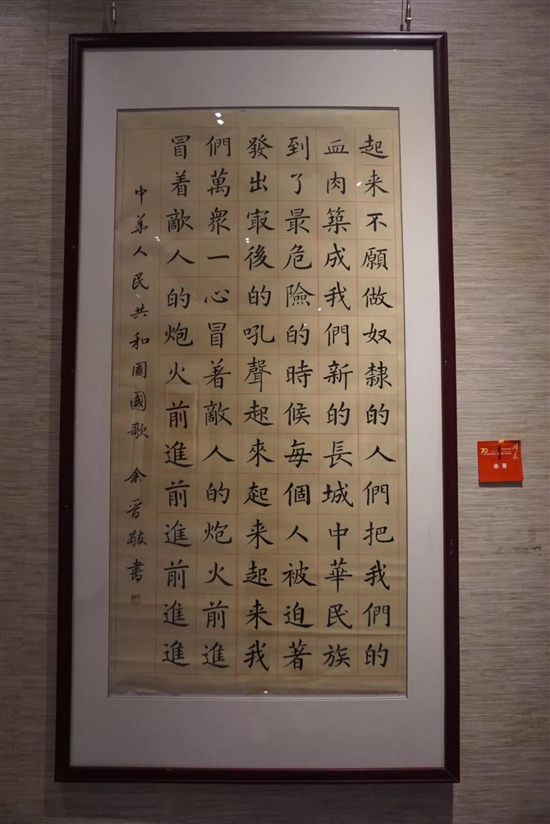 起来不願做奴隸的人們把我們的
血肉築成我們新的長城中華民族
到了最危險的時候每個人被迫著
發出冣後的吼聲起來起来起来我
們萬眾一心冒著敵人的炮火前進
冒着敵人的炮火前進前進前進進
中華人民共和國國歌 余晉敬書
余晋